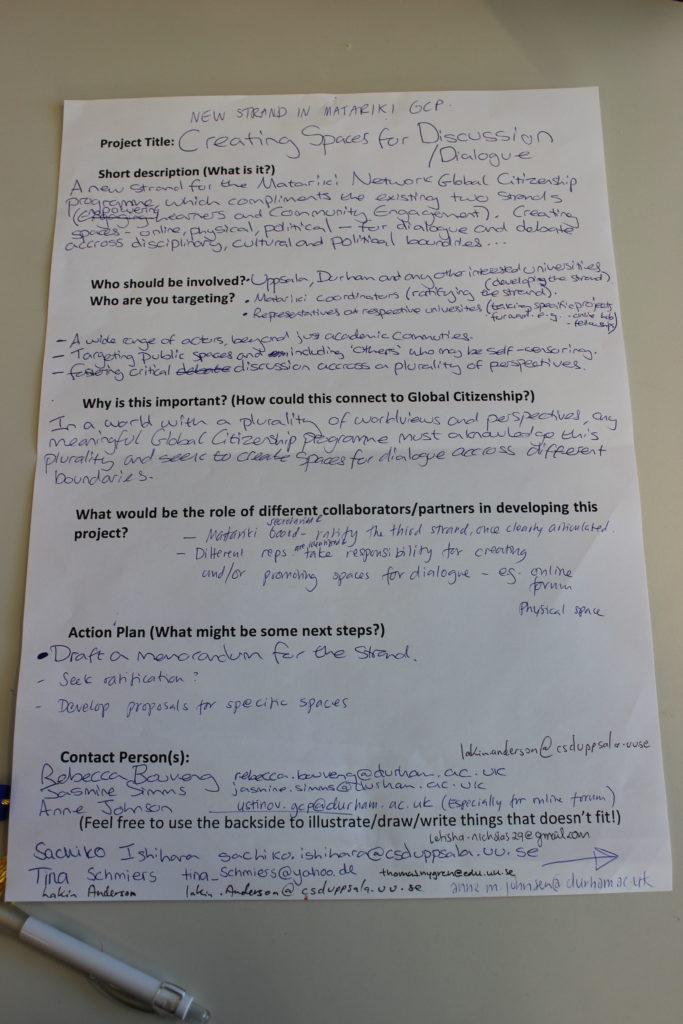 NEW STRAND IN MATARIKI GCP.
Project Title: Creating Spaces for Discussion
/Dialogue
Short description (What is it?)
A new strand for the Matariki Network Global Citizenship
programme, which compliments the existing two strands
empowering
(Engaging Learners and Community Engagement). Creating
spaces - online, physical, political - for dialogue and debate
accross disciplinary, cultural and political boundries...
Who should be involved? • Uppsala, Durham and any other interested universities
(developing the strand)
Who are you targeting? • Matariki coordinators (ratifying the strand).
• Representatives at respective universites (taking specific projects
forward e.g. - online hub
- fellowships)
- A wide range of actors, beyond just academic commuties.
- Targeting public spaces and including 'others' who may be self-censoring.
- fostering critical debate discussion accross a plurality of perspectives.
Why is this important? (How could this connect to Global Citizenship?)
In a world with a plurality of worldviews and perspectives, any
meaningful Global Citizenship Programme must aknowledge this
plurality and seek to create spaces for dialogue accross different
boundaries.
What would be the role of different collaborators/partners in developing this
project?
secretariat &
- Matariki board - ratify the third strand, once clearly articulated.
- Different reps take responsibility for creating
and/or promoting spaces for dialogue - eg. online
forum
Physical space
Action Plan (What might be some next steps?)
• Draft a memorandum for the strand.
- Seek ratification?
- Develop proposals for specific spaces
lakin.anderson@csduppsala.uu.se
Contact Person(s):
Rebecca Bouveng rebecca.bouveng@durham.ac.uk
Jasmine Simms jasmine.simms@durham.ac.uk
Anne Johnson ustinov.gcp@durham.ac.uk (especially for online forum)
(Feel free to use the backside to illustrate/draw/write things that doesn't fit!)
letisha.nicholas29@gmail.com
Sachiko Ishihara sachiko.ishihara@csduppsala.uu.se
Tina Schmiers tina_schmiers@yahoo.de thomas.nygren@edu.uu.se
Lakin Anderson lakin.Anderson@csduppsala.uu.se anne.m.johnsen@durham.ac.uk